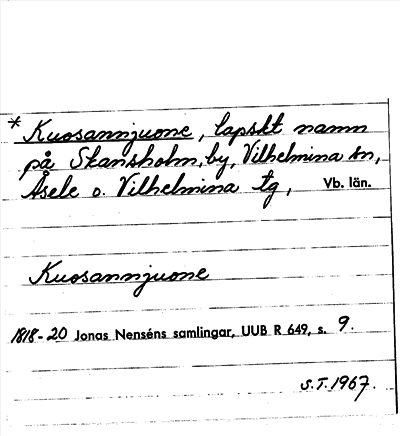 * Kuosannjuone, lapskt namn
på Skansholm, by, Vilhelmina sn,
Åsele o. Vilhelmina tg, Vb. län.
Kuosannjuone
1818-20 Jonas Nenséns samlingar, UUB R 649, s. 9.
S.T. 1967.